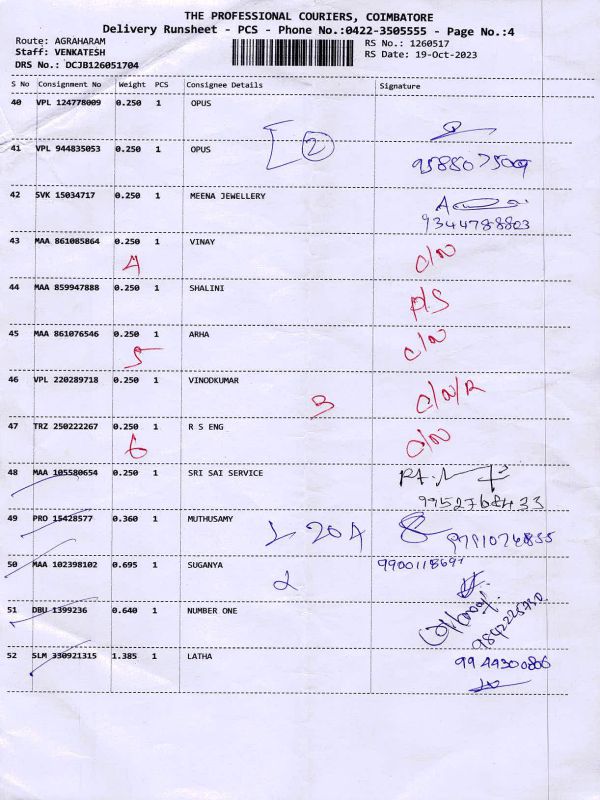 THE PROFESSIONAL COURIERS, COIMBATORE
Delivery Runsheet - PCS - Phone No.:0422-3505555 - Page No.:4
Route: AGRAHARAM RS No.: 1260517
Staff: VENKATESH RS Date: 19-Oct-2023
DRS No.: DCJB126051704
S No Consignment No Weight PCS Consignee Details Signature
40 VPL 124778009 0.250 1 OPUS
2
41 VPL 944835053 0.250 1 OPUS
42 SVK 15034717 0.250 1 MEENA JEWELLERY
9344788803
43 MAA 861085864 0.250 1 VINAY
4 C/N
44 MAA 859947888 0.250 1 SHALINI
P/S
45 MAA 861076546 0.250 1 ARHA
5 C/N
46 VPL 220289718 0.250 1 VINODKUMAR
3 C/N/R
47 TRZ 250222267 0.250 1 R S ENG
6 C/N
48 MAA 105580654 0.250 1 SRI SAI SERVICE
49 PRO 15428577 0.360 1 MUTHUSAMY
50 MAA 102398102 0.695 1 SUGANYA
2
51 DBU 1399236 0.640 1 NUMBER ONE
9842225750
52 SLM 330921315 1.385 1 LATHA
9944300806